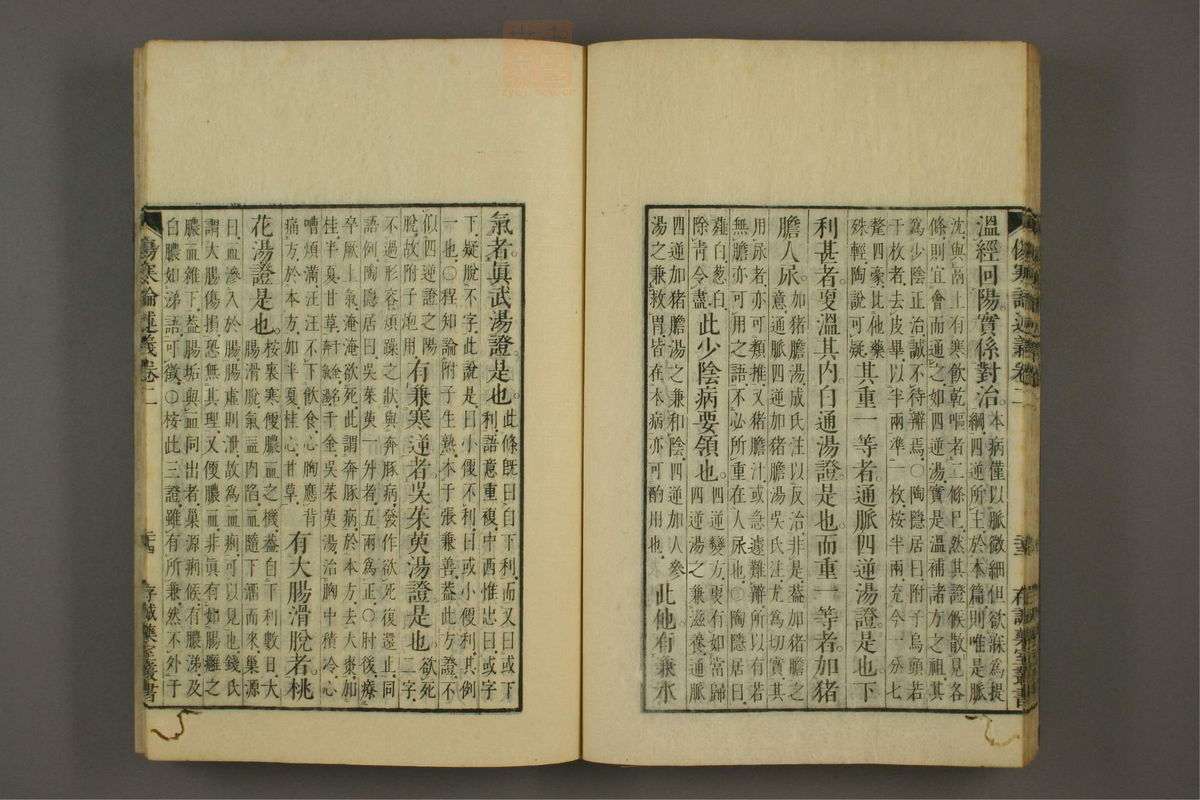 傷寒論述義卷二
存誠藥室叢書
溫經回陽實係對治。
本病僅以脈微細但欲寐爲提
綱四逆所主於本篇則唯是脈
沈與鬲上有寒飲乾嘔者二條已然其證候散見各
條則宜會而通之如四逆湯實是溫補諸方之祖其
爲少陰正治誠不待辯焉○陶隱居曰附子烏頭若
干枚者去皮畢以半兩準一枚桉半兩充今一分七
釐四豪比他藥
殊輕陶說可疑
其重一等者通脈四逆湯證是也下
利甚者更溫其內白通湯證是也而重一等者加猪
膽人尿
加猪膽湯成氏注以反治非是葢加猪膽之
意通脈四逆加猪膽湯吳氏注尤爲切實其
用尿者亦可類推又猪膽汁或急遽難辯所以有若
無膽亦可用之語不必所重在人尿也○陶隱居曰
薤白葱白
除靑令盡
此少陰病要領也
四逆變方更有如當歸
四逆湯之兼滋養通脈
四逆加猪膽湯之兼和陰四逆加人參
湯之兼救胃皆在本病亦可酌用也
此他有兼水
氣者眞武湯證是也
此條旣曰自下利而又曰或下
利語意重複中西惟忠曰或字
下疑脫不字此說是曰小便不利曰或小便利其例
一也○程知論附子生熟本于張兼善葢此方證不
似四逆證之陽
脫故附子炮用
有兼寒逆者吳茱萸湯證是也
欲死
二字
不過形容煩躁之狀與奔豚病發作欲死復還止同
語例陶隱居曰吳茱萸一升者五兩爲正○肘後療
卒厥上氣淹淹欲死此謂奔豚病於本方去大棗加
桂半夏甘草千金吳茱萸湯治胸中積冷心
嘈煩滿汪汪不下飲食心胸應背
痛方於本方加半夏桂心甘草
有大腸滑脫者桃
花湯證是也
桉裏寒便膿血之機葢自下利數日大
腸滑脫氣益內陷血隨下濡而來巢源
曰血滲入於腸腸虛則泄故爲血痢可以見也錢氏
謂大腸傷損恐無其理又便膿血非眞有如腸癰之
膿血雜下葢腸垢與血同出者巢源痢候有膿涕及
白膿如涕語可徵○桉此三證雖有所兼然不外于
傷寒論述義卷二
存誠藥室叢書